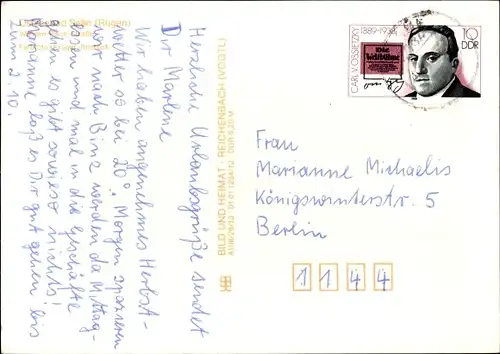 Sellin (Rügen)
Herzliche Urlaubsgrüße sendet
Dir Marlene
Wir haben angenehmes Herbst-
wetter so bei 20°. Morgen spazieren
wir nach Binz werden da Mittag-
essen und mal in die Geschäfte
so gibt sowieso nichts!
Marianne laß es Dir gut gehen bis
zum 2.10.
BILD UND HEIMAT · REICHENBACH (VOGTL)
CARL V. OSSIETZKY
1889-1938
Die
Weltbühne
10
DDR
Frau
Marianne Michaelis
Königswinterstr. 5
Berlin
1 1 4 4